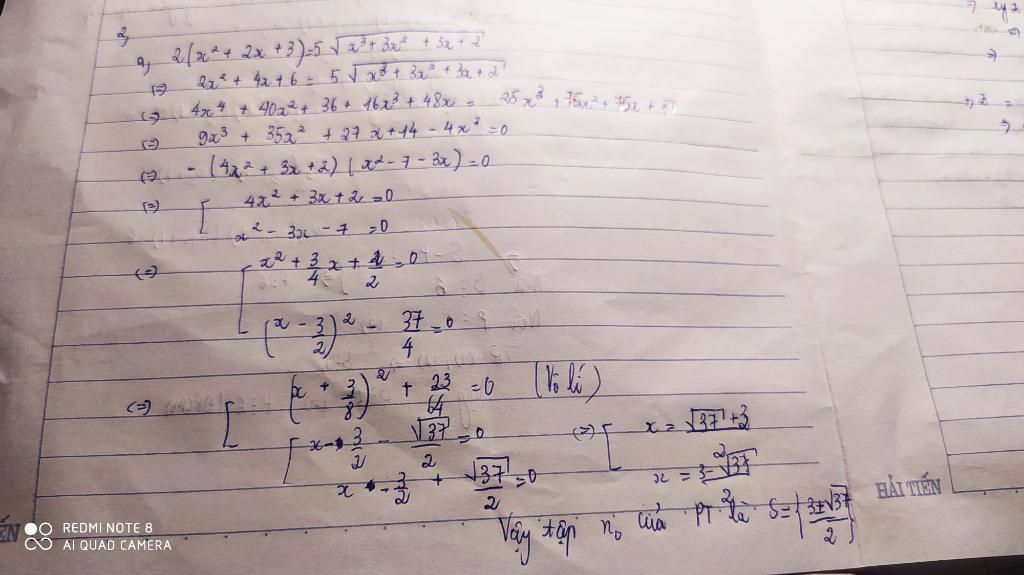 2,
a, 2(x² + 2x + 3) = 5√(x³ + 3x² + 3x + 2)
(=) 2x² + 4x + 6 = 5√(x³ + 3x² + 3x + 2)
(=) 4x⁴ + 40x² + 36 + 16x³ + 48x = 25x³ + 75x² + 75x +
(=) 9x³ + 35x² + 27x + 14 - 4x³ = 0
(=) - (4x² + 3x + 2)(x² - 7 - 3x) = 0
(=) [ 4x² + 3x + 2 = 0
x² - 3x - 7 = 0
(=) [ x² + 3/4 x + 1/2 = 0
(x - 3/2)² - 37/4 = 0
(=) [ (x + 3/8)² + 23/64 = 0 (Vô lí)
[ x - 3/2 - √37/2 = 0 (=) [ x = √37 + 3/2
x - 3/2 + √37/2 = 0 x = 3 - √37/2
Vậy tập n₀ của PT là S = {3 ± √37/2}
HẢI TIẾN
REDMI NOTE 8
AI QUAD CAMERA